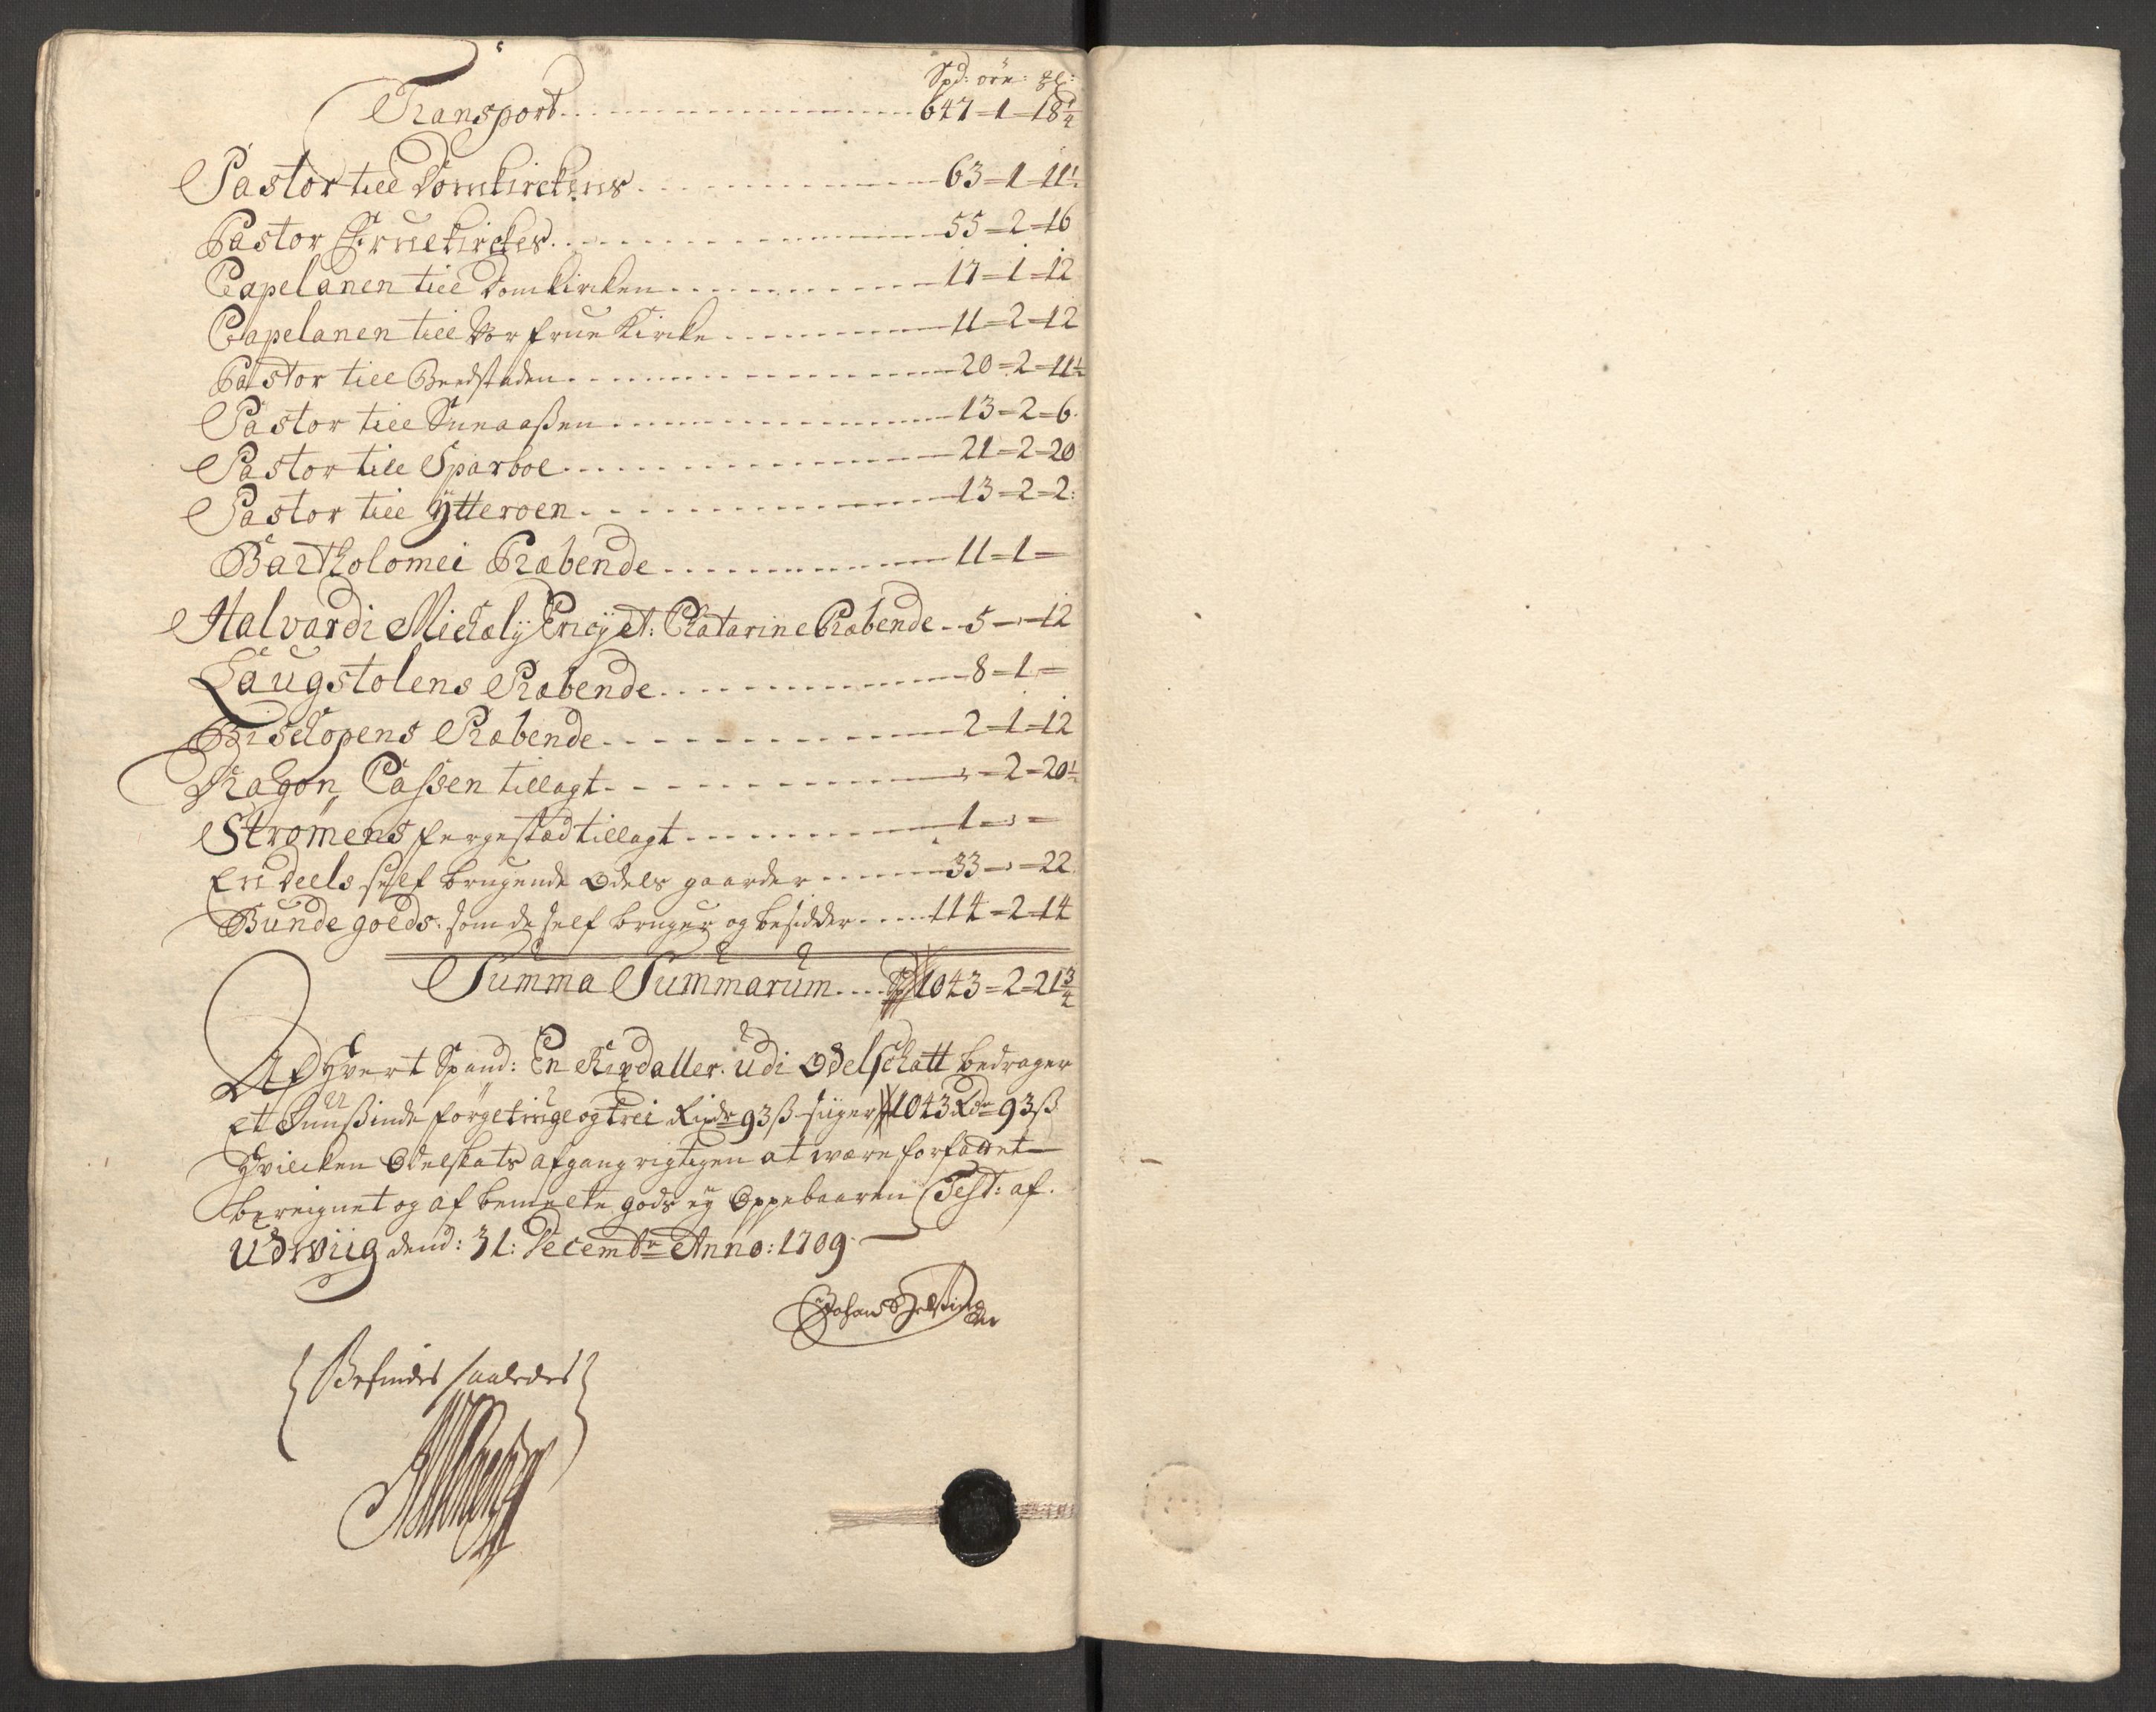 Spd: öre: gl:
Transport 647 = 1 = 18 1/4
Pastor till Domkirckens 63 = 1 = 11 1/2
Pastor Fruekirches 55 = 2 = 16
Capelanen till Domkircken 17 = 1 = 12
Capelanen till Vor frue Kircke 11 = 2 = 12
Pastor till Beedstaden 20 = 2 = 11 1/2
Pastor till Sneaaßen 13 = 2 = 6
Pastor till Sparboe 21 = 2 = 20
Pastor till Ÿtteroen 13 = 2 = 2:
Bartholomei Præbende 11 = 1 =
Halvardi Michælij Ericij et: Chatarine Præbende 5 = - = 12
Laugstolens Præbende 8 = 1 =
Bischopens Præbende 2 = 1 = 12
Dragon Cassen tillagt - = 2 = 20 1/2
Strømens fergestæd tillagt 1 = - =
En deels self brugende Odels gaarder 33 = - = 22
Bunde goeds. som de self bruger og besidder 114 = 2 = 14
Summa Summarum 1043 = 2 = 21 3/4
Af Hvert Spand: En Rixdaller. udi Odelschatt bedrager
et Tuußindeførgetiuge og trei Rixdr 93 ß siger 1043 Rdr 93 ß
Hvilcken Odelskats afgang rigtigen at være forfattet
bereignet og af bemelte gods ey Oppebaaren Test: af.
Udwiig dend: 31: Decembr Anno: 1709
Johan
Befindes saaledes